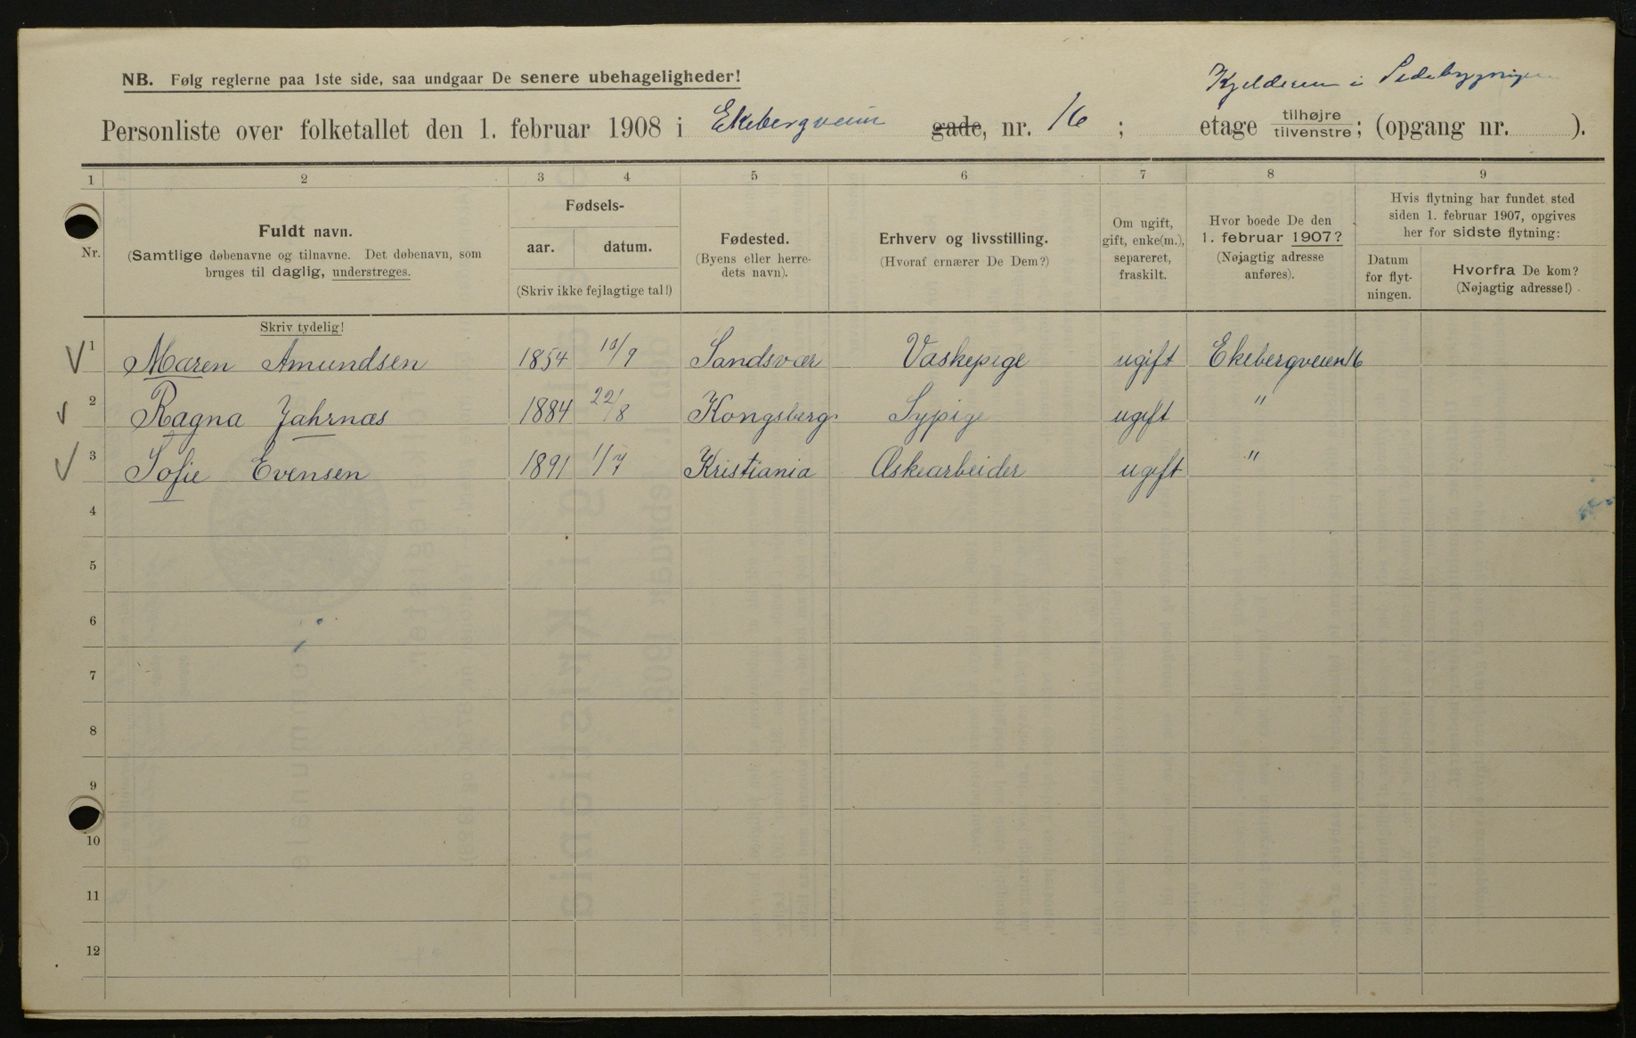 NB. Følg reglerne paa 1ste side, saa undgaar De senere ubehageligheder!
Kjelderen i Sidebygningen
Personliste over folketallet den 1. februar 1908 i Ekebergveien gade, nr. 16 ; etage tilhøjre tilvenstre; (opgang nr. ).
1 2 3 4 5 6 7 8 9
Nr.
Fuldt navn.
(Samtlige døbenavne og tilnavne. Det døbenavn, som
bruges til daglig, understreges.
Skriv tydelig!
Fødsels-
aar. datum.
(Skriv ikke fejlagtige tal!)
Fødested.
(Byens eller herre-
dets navn).
Erhverv og livsstilling.
(Hvoraf ernærer De Dem?)
Om ugift,
gift, enke(m.),
separeret,
fraskilt.
Hvor boede De den
1. februar 1907?
(Nøjagtig adresse
anføres).
Hvis flytning har fundet sted
siden 1. februar 1907, opgives
her for sidste flytning:
Datum
for flyt-
ningen.
Hvorfra De kom?
(Nøjagtig adresse!)
1 Maren Amundsen 1854 13/9 Sandsvær Vaskepige ugift Ekebergveien 16
2 Ragna Jahrnæs 1884 22/8 Kongsberg Sypige ugift "
3 Sofie Evensen 1891 1/7 Kristiania Æskearbeider ugift "
4
5
6
7
8
9
10
11
12